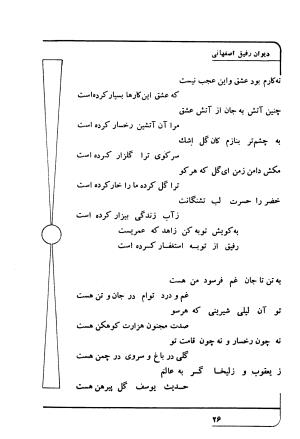 دیوان رفیق اصفهانی
نه کارم بود عشق و این عجب نیست
که عشق این کارها بسیار کرده است
چنین آتش به جان از آتش عشق
مرا آن آتشین رخسار کرده است
به چشم تر بنازم کان گل اشك
سر کوی ترا گلزار کرده است
مکش دامن ز من ای گل که هر کو
ترا گل کرده ما را خار کرده است
خضر را حسرت لب تشنگانت
ز آب زندگی بیزار کرده است
به کویش توبه کن زاهد که عمریست
رفیق از توبه استغفار کرده است
به تن تا جان غم فرسود من هست
غم و درد توام در جان و تن هست
تو آن لیلی شیرینی که هر سو
صدت مجنون هزارت کوهکن هست
نه چون رخسار و نه چون قامت تو
گلی در باغ و سروی در چمن هست
ز یعقوب و زلیخا گر به عالم
حدیث یوسف گل پیرهن هست
۲۶